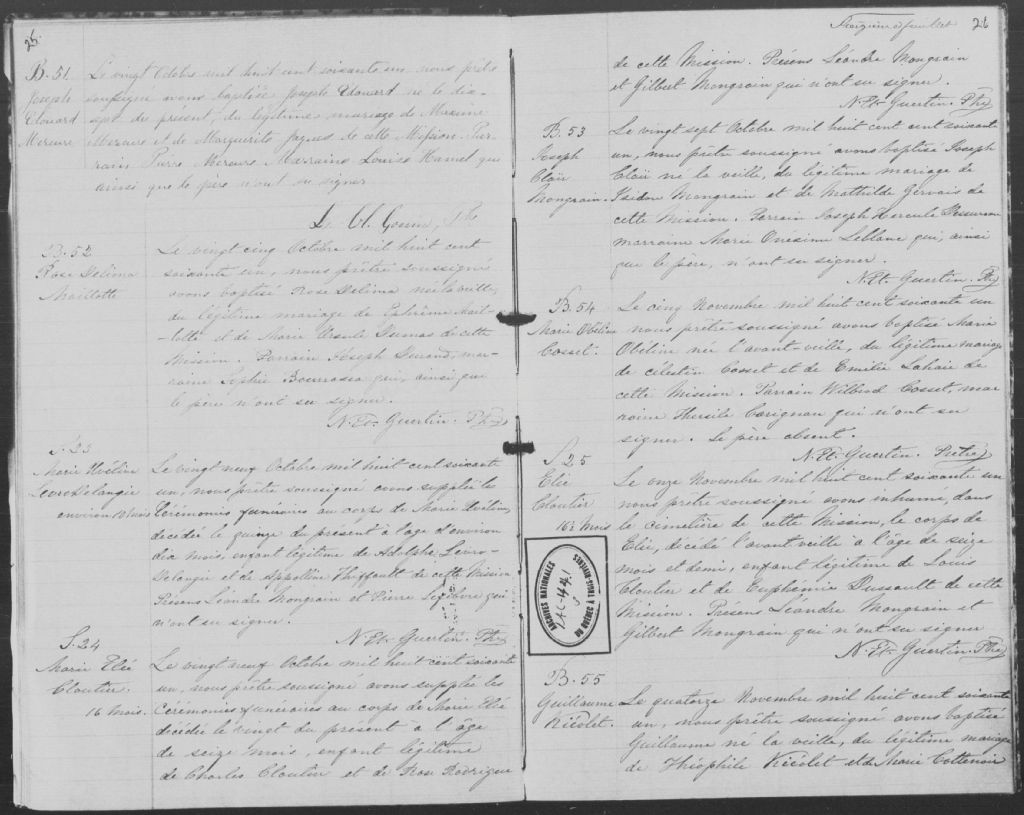 B. 51
Joseph
Edouard
Mercure
Le vingt Octobre mil huit cent soixante un, nous prêtre
soussigné avons baptisé Joseph Edouard né le dix-
sept du présent, du légitime mariage de
Mercure et de Marguerite de cette Mission Par-
rain, Pierre Mercure Marraine Louise Hamel qui
ainsi que le père n'ont su signer
Ptre
B. 52
Rose Delima
Maillotte
Le vingt cinq Octobre mil huit cent
soixante un, nous prêtre soussigné
avons baptisé Rose Delima née la veille,
du légitime mariage de Ephrême Mail-
-lotte et de Marie Ursule de cette
Mission. Parrain Joseph Durand, ma-
raine Sophie Bourrassa qui, ainsi que
le père n'ont su signer.
N. Et. Guertin. Ptre
S. 23
Marie Evéline
environ 10 mois
Le vingt neuf Octobre mil huit cent soixante
un, nous prêtre soussigné avons suppléé les
Cérémonies funéraires au corps de Marie Evéline,
décédée le quinze du présent à l'âge d'environ
dix mois, enfant légitime de Adolphe Levro-
Delangie et de Appolline Thiffault de cette Mission
Présens Léandre Mongrain et Pierre Lefebvre qui
n'ont su signer.
N. Et. Guertin. Ptre
S. 24
Marie Elié
Cloutier.
16 mois.
Le vingt neuf Octobre mil huit cent soixante
un, nous prêtre soussigné avons suppléé les
Cérémonies funéraires au corps de Marie Elié
décédée le vingt du présent à l'âge
de seize mois, enfant légitime
de Charles Cloutier et de Rose Rodrigue
26
de cette Mission. Présens Léandre Mongrain
et Gilbert Mongrain qui n'ont su signer.
N. Et. Guertin. Ptre
B. 53
Joseph
Cloïr
Mongrain.
Le vingt sept Octobre mil huit cent cent soixante
un, nous prêtre soussigné avons baptisé Joseph
né la veille, du légitime mariage de
Isidore Mongrain et de Mathilde Gervais de
cette Mission. Parrain Joseph Hercule
marraine Marie Onésime Leblanc qui, ainsi
que le père, n'ont su signer.
N. Et. Guertin. Ptre
B. 54
Marie Obéline
Cosset.
Le cinq Novembre mil huit cent soixante un
nous prêtre soussigné avons baptisé Marie
Obéline née l'avant-veille, du légitime mariage
de Célestin Cosset et de Emélie Lahaie de
cette Mission. Parrain Wilbrod Cosset, mar
raine Hersile Carignan qui n'ont su
signer. Le père absent.
N. Et. Guertin. Prêtre
S. 25
Elié
Cloutier
16½ mois
Le onze Novembre mil huit cent soixante un
nous prêtre soussigné avons inhumé, dans
le cimetière de cette Mission, le corps de
Elié, décédé l'avant veille à l'âge de seize
mois et demi, enfant légitime de Louis
Cloutier et de Euphémie Dussault de cette
Mission. Présens Léandre Mongrain et
Gilbert Mongrain qui n'ont su signer
N. Et. Guertin. Ptre
ARCHIVES NATIONALES
DU QUÉBEC À TROIS-RIVIÈRES
B. 55
Guillaume
Nicolet.
Le quatorze Novembre mil huit cent soixante
un, nous prêtre soussigné avons baptisé
Guillaume né la veille, du légitime mariage
de Théophile Nicolet et de Marie Cottenoir